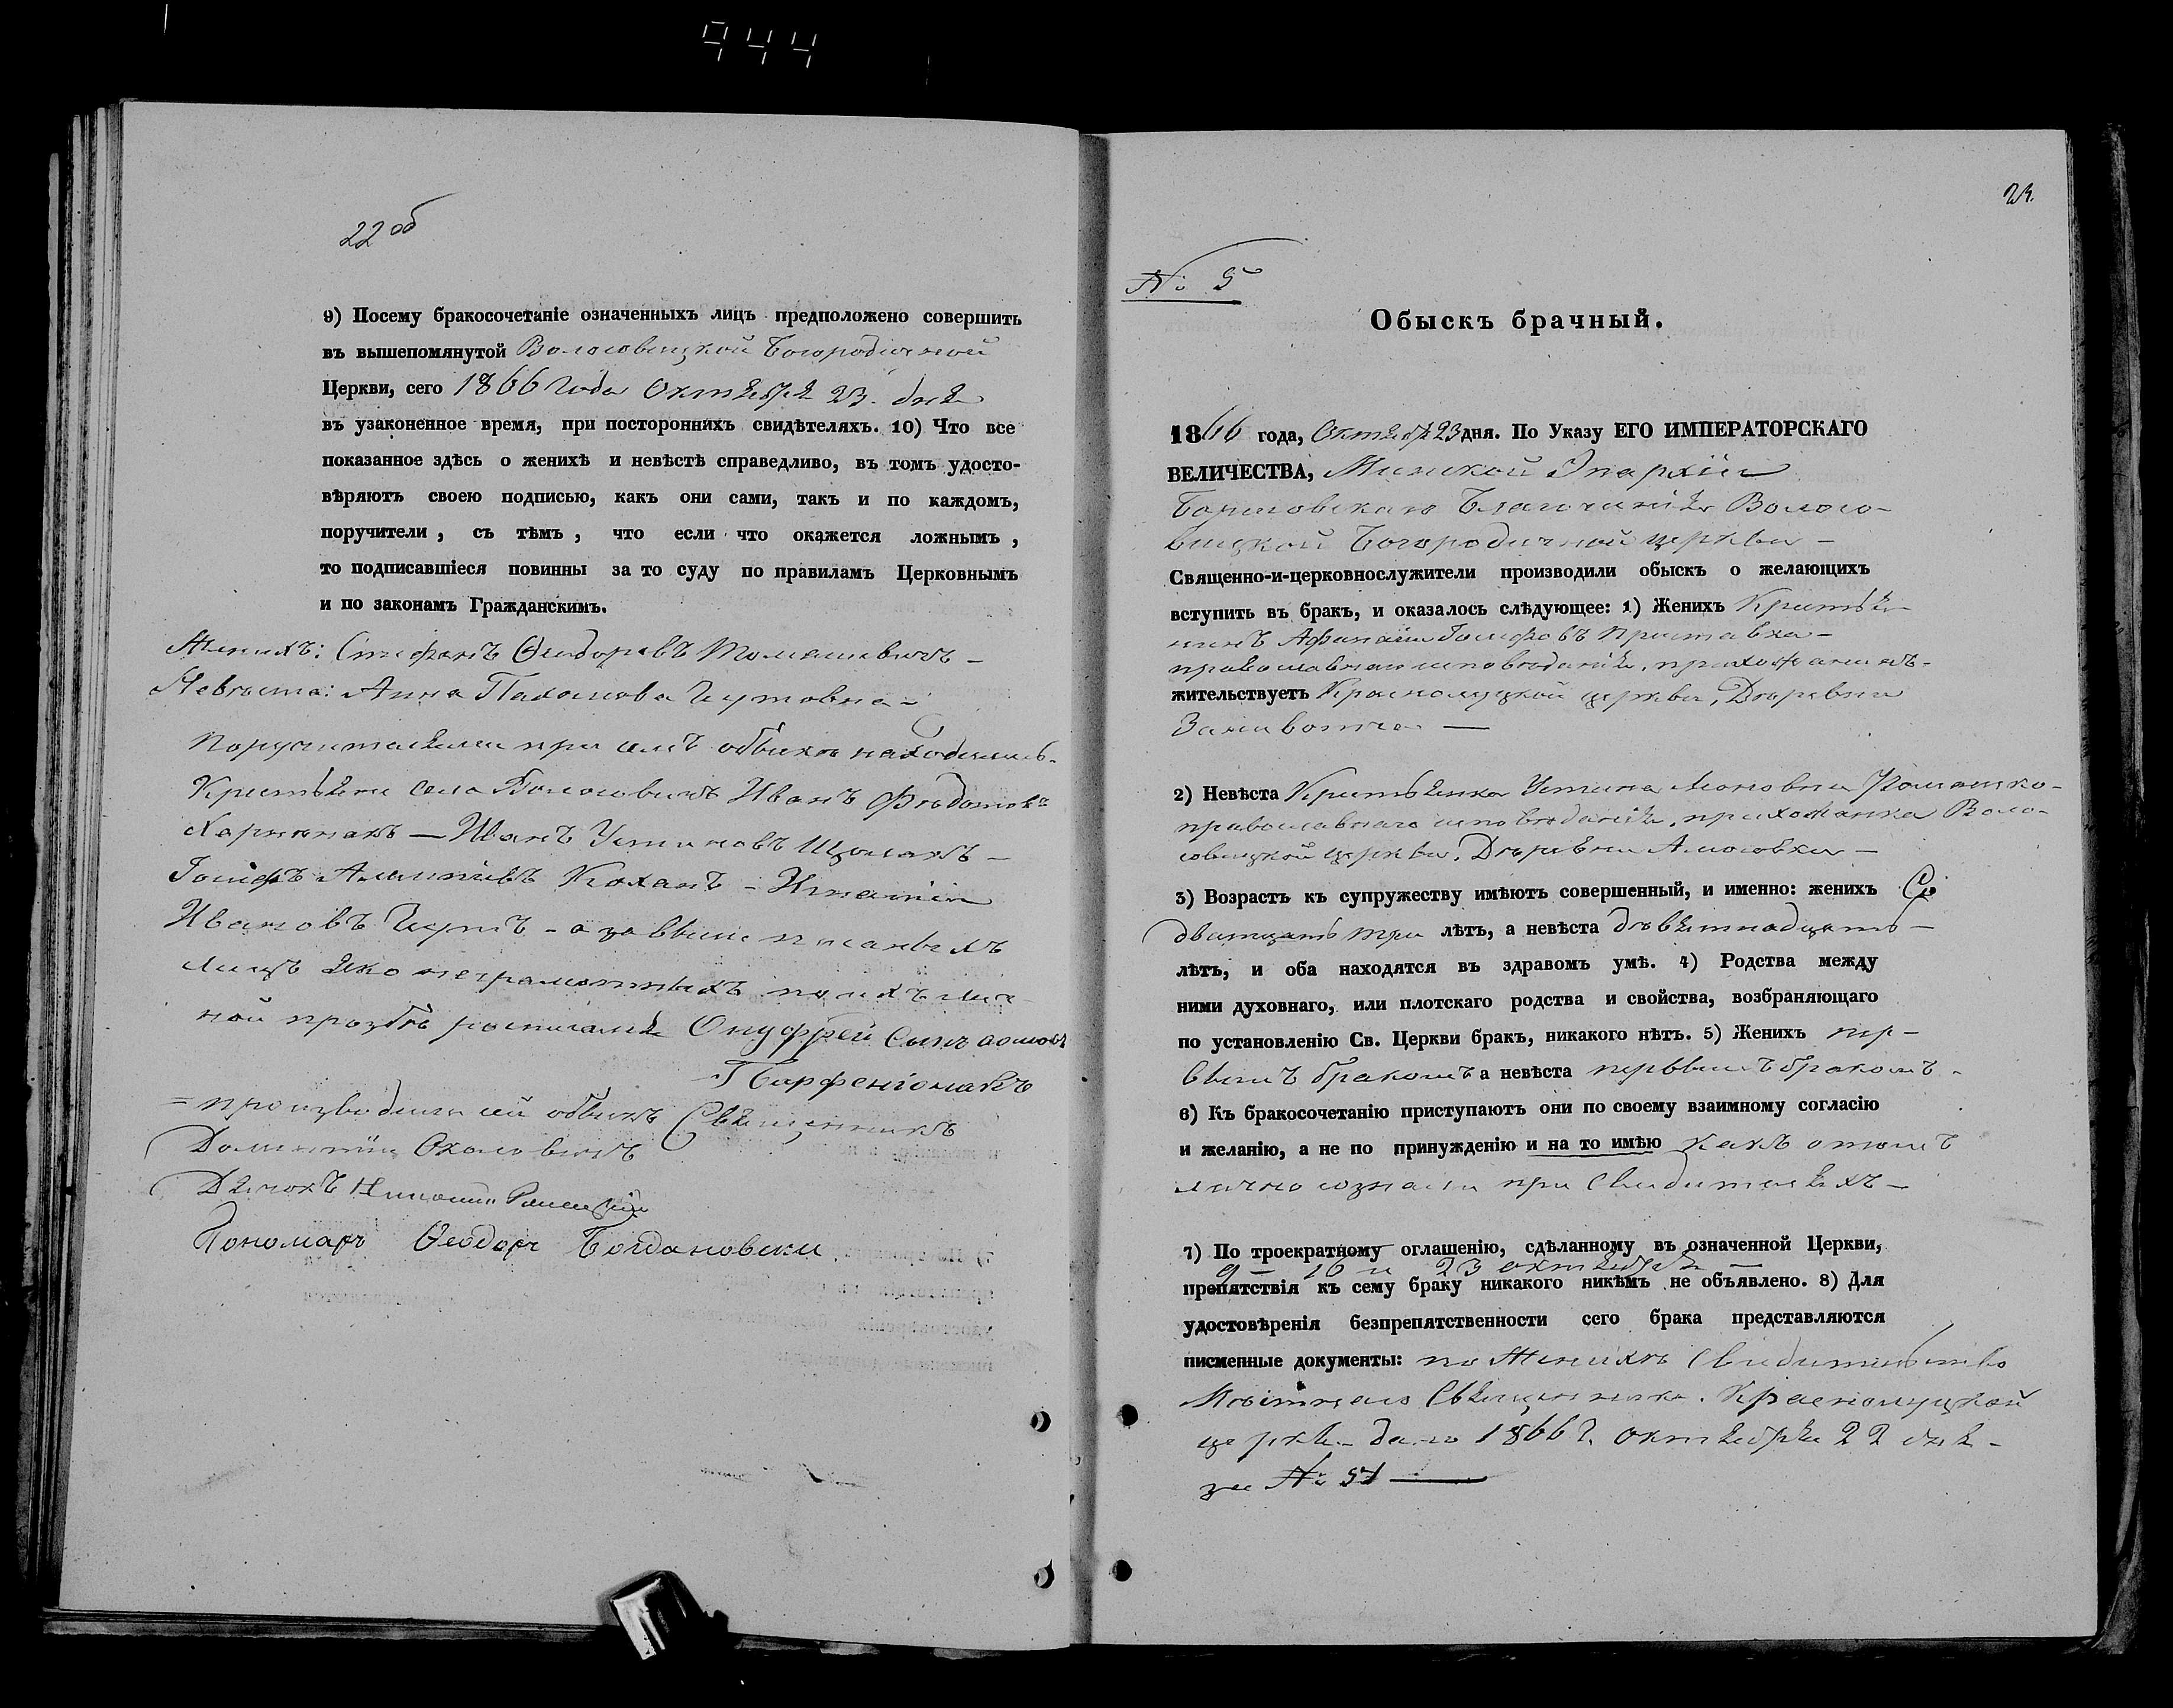 944
22 об
9) Посему бракосочетаніе означенныхъ лицъ предположено совершить
въ вышепомянутой Волосовицкой Богородичной
Церкви, сего 1866 года Октября 23. дня
въ узаконенное время, при постороннихъ свидѣтеляхъ. 10) Что все
показанное здѣсь о женихѣ и невѣстѣ справедливо, въ томъ удосто-
вѣряютъ своею подписью, какъ они сами, такъ и по каждомъ,
поручители, съ тѣмъ, что если что окажется ложнымъ,
то подписавшіеся повинны за то суду по правиламъ Церковнымъ
и по законамъ Гражданскимъ.
Женихъ: Стефанъ Ѳеодоровъ
Невѣста: Анна Пахомова
Поручителями при семъ обыскѣ находились
Крестьяне села Волосовичъ Иванъ Ѳедотовъ
Иванъ Устиновъ
Іосифъ Кохан - Игнатій
Ивановъ - а за вышеписанныхъ
лицъ яко неграмотныхъ по ихъ лич-
ной прозбѣ росписался Онуфрей
Парфеніомакъ
= производили сей обыскъ Священникъ
Доментій Околовичъ
Дьячокъ
Пономарь Ѳеодоръ Богдановски.
23.
№ 5
Обыскъ брачный.
1866 года, Октября 23 дня. По Указу ЕГО ИМПЕРАТОРСКАГО
ВЕЛИЧЕСТВА, Минской Эпархіи
Борисовскаго Благочинія Волосо-
вицкой Богородичной церкви -
Священно-и-церковнослужители производили обыскъ о желающихъ
вступить въ бракъ, и оказалось слѣдующее: 1) Женихъ Крестья-
нинъ Афанасій Іосифовъ Приставка -
православнаго исповѣданія, прихожанинъ -
жительствуетъ Краснолуцкой церкви, Деревни
2) Невѣста Крестьянка Устина
православнаго исповѣданія, прихожанка Воло-
совицкой церкви, Деревни Амосовки -
3) Возрастъ къ супружеству имѣютъ совершенный, и именно: женихъ
двадцать три лѣтъ, а невѣста девятнадцать -
лѣтъ, и оба находятся въ здравомъ умѣ. 4) Родства между
ними духовнаго, или плотскаго родства и свойства, возбраняющаго
по установленію Св. Церкви бракъ, никакого нѣтъ. 5) Женихъ пер-
вымъ бракомъ а невѣста первымъ бракомъ -
6) Къ бракосочетанію приступаютъ они по своему взаимному согласію
и желанію, а не по принужденію и на то имѣю какъ о томъ
лично сознали при свидѣтеляхъ -
7) По троекратному оглашенію, сдѣланному въ означенной Церкви,
9 - 16 и 23 октября -
препятствія къ сему браку никакого никѣмъ не объявлено. 8) Для
удостовѣренія безпрепятственности сего брака представляются
писменные документы: по Женихѣ Свидѣтельство
Мѣстнаго Священника. Краснолуцкой
церкви дано 1866 г. октября 22 дня -
за №